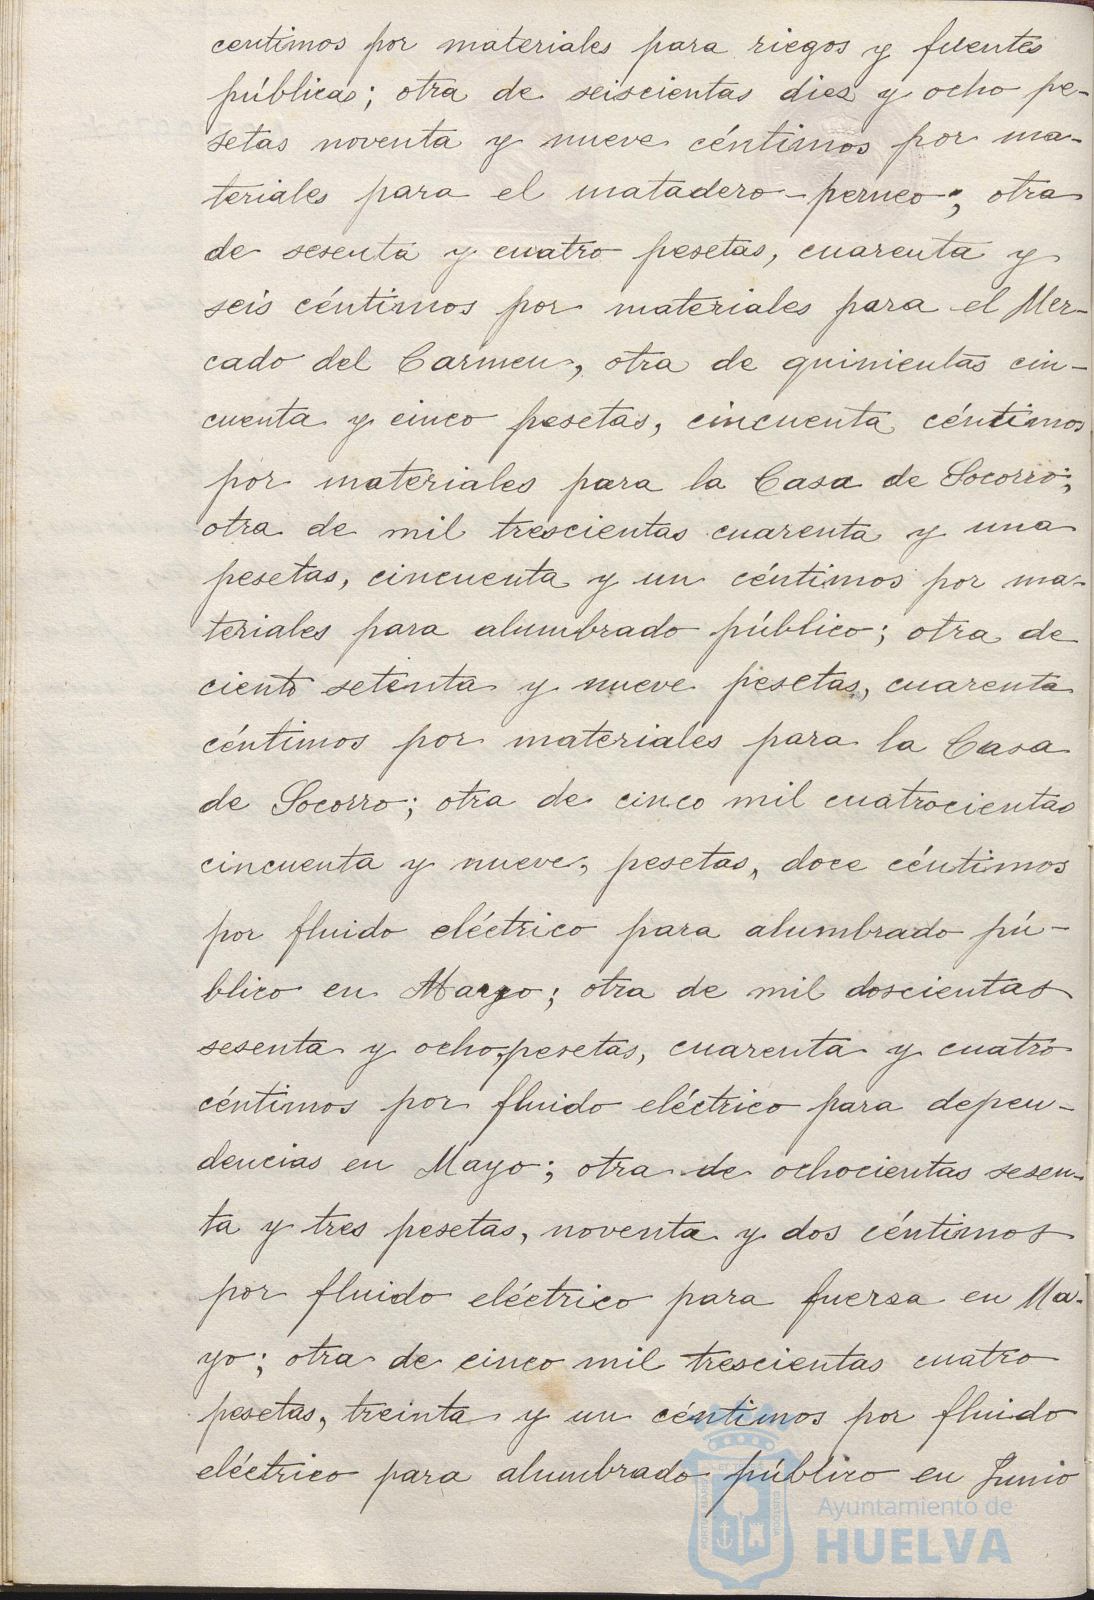 centimos por materiales para riegos y fuentes
públicas; otra de seiscientas diez y ocho pe-
setas noventa y nueve céntimos por ma-
teriales para el matadero-perneo; otra
de sesenta y cuatro pesetas, cuarenta y
seis céntimos por materiales para el Mer-
cado del Carmen, otra de quinientas cin-
cuenta y cinco pesetas, cincuenta céntimos
por materiales para la Casa de Socorro;
otra de mil trescientas cuarenta y una
pesetas, cincuenta y un céntimos por ma-
teriales para alumbrado público; otra de
ciento setenta y nueve pesetas, cuarenta
céntimos por materiales para la Casa
de Socorro; otra de cinco mil cuatrocientas
cincuenta y nueve, pesetas, doce céntimos
por fluido eléctrico para alumbrado pú-
blico en Mayo; otra de mil doscientas
sesenta y ocho, pesetas, cuarenta y cuatro
céntimos por fluido eléctrico para depen-
dencias en Mayo; otra de ochocientas sesen-
ta y tres pesetas, noventa y dos céntimos
por fluido eléctrico para fuerza en Ma-
yo; otra de cinco mil trescientas cuatro
pesetas, treinta y un céntimos por fluido
eléctrico para alumbrado público en Junio
Ayuntamiento de
HUELVA